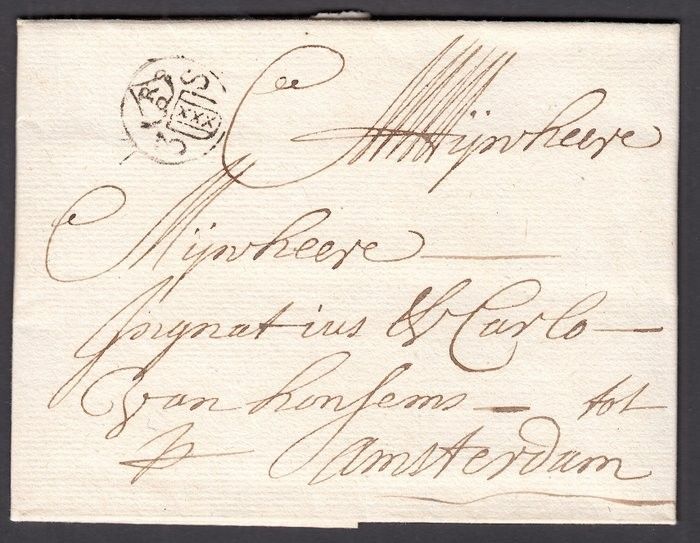 Mijnheere
Mijnheere
Ingnatius & Carlo
van honsems tot
Amsterdam
XXX
3 S